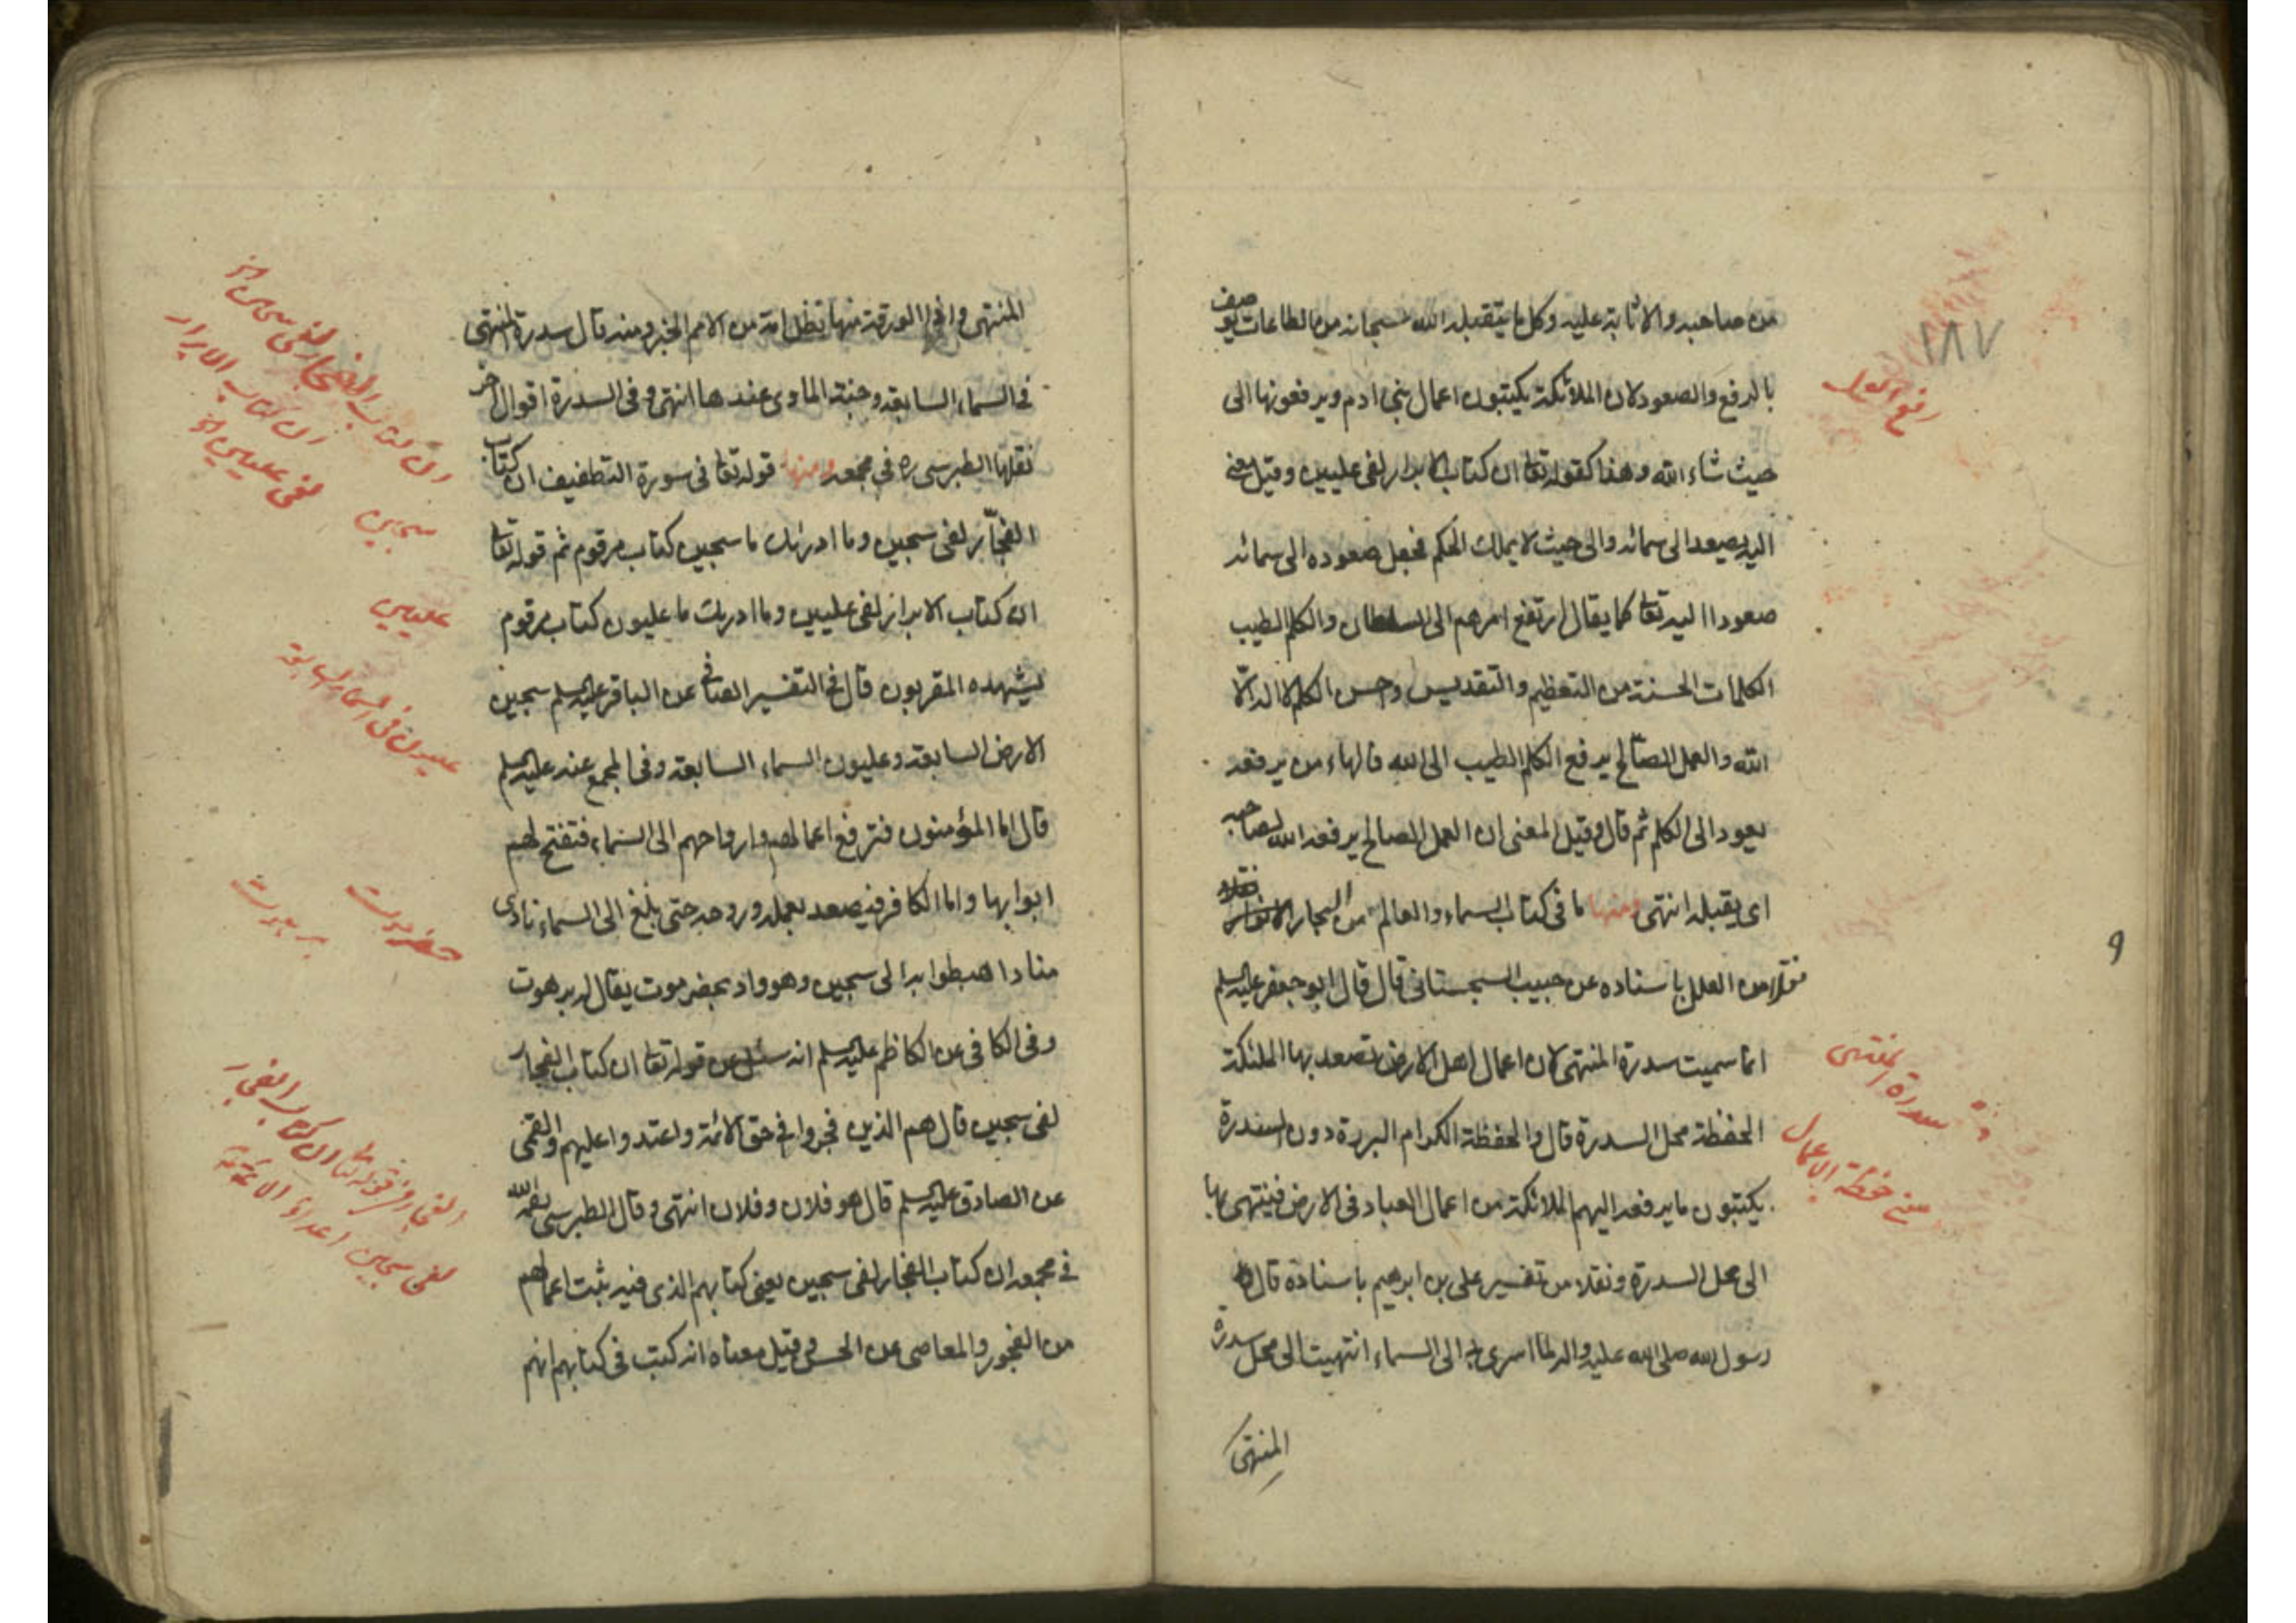 من صاحبه والاثابة عليه وكل ما يتقبله الله سبحانه من الطاعات يوصف
بالرفع والصعود لان الملائكة يكتبون اعمال بنى ادم ويرفعونها الى
حيث شاء الله وهذا كقوله تعا ان كتاب الابرار لفى عليين وقيل معنى
اليه يصعد الى سمائه والى حيث لا يملك الحكم فجعل صعوده الى سمائه
صعودا اليه تعا كما يقال ارتفع امرهم الى السلطان والكلم الطيب
الكلمات الحسنة من التعظيم والتقديس وحسن الكلم لا اله الّا
الله والعمل الصالح يرفع الكلم الطيب الى الله فالهاء من يرفعه
يعود الى الكلم ثم قال وقيل المعنى ان العمل الصالح يرفعه الله لصاحبه
اى يقبله انتهى ومنها ما فى كتاب السماء والعالم من البحار
نقلا من العلل باسناده عن حبيب السجستانى قال قال ابو جعفر عليه السلم
انما سميت سدرة المنتهى لان اعمال اهل الارض تصعد بها الملئكة
الحفظة محل السدرة قال والحفظة الكرام البررة دون السدرة
يكتبون ما يرفعه اليهم الملائكة من اعمال العباد فى الارض فينتهى بها
الى محل السدرة ونقلا من تفسير على بن ابرهيم باسناده قال
رسول الله صلى الله عليه واله لما اسرى بى الى السماء انتهيت الى محل سدرة
المنتهى
١٨٧
رفع العمل
٩
سدرة المنتهى
حفظة الاعمال
المنتهى واذا الورقة منها تظل امة من الامم الخبر ومنه قال سدرة المنتهى
فى السماء السابعة وجنة الماوى عندها انتهى وفى السدرة اقوال اخر
نقلها الطبرسى ره فى مجمعه ومنها قوله تعا فى سورة التطفيف ان كتاب
الفجّار لفى سجين وما ادرىك ما سجين كتاب مرقوم ثم قوله تعا
ان كتاب الابرار لفى عليين وما ادريك ما عليون كتاب مرقوم
يشهده المقربون قال فى التفسير الصافى عن الباقر عليه السلم سجين
الارض السابعة وعليون السماء السابعة وفى المجمع عنه عليه السلم
قال اما المؤمنون فترفع اعمالهم وارواحهم الى السماء فتفتح لهم
ابوابها واما الكافر فيصعد بعمله وروحه حتى بلغ الى السماء نادى
مناد اهبطوا به الى سجين وهو واد بحضرموت يقال له برهوت
وفى الكافى عن الكاظم عليه السلم انه سئل عن قوله تعا ان كتاب الفجار
لفى سجين قال هم الذين فجروا فى حق الائمة واعتدوا عليهم والقمى
عن الصادق عليه السلم قال هو فلان وفلان انتهى وقال الطبرسى
فى مجمعه ان كتاب الفجار لفى سجين يعنى كتابهم الذى فيه يثبت اعمالهم
من الفجور والمعاصى عن الحسن وقيل معناه انه كتب فى كتابهم انهم
ان كتاب الفجار لفى سجين
ان كتاب الابرار
لفى عليين
سجين
عليين
عليون فى السماء السابعة
حضرموت
برهوت
الفجار فى قوله تعا ان كتاب الفجار
لفى سجين اعداء الائمة